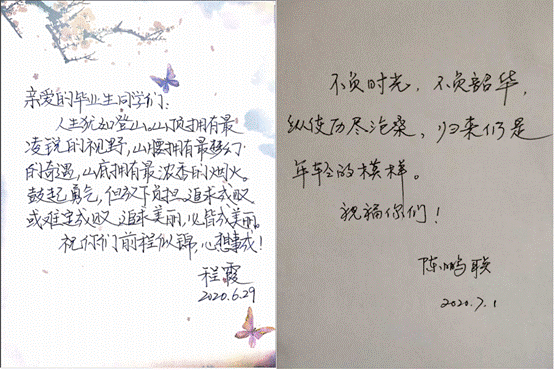 亲爱的毕业生同学们：
人生犹如登山。山顶拥有最
凌锐的视野，山腰拥有最梦幻
的奇遇，山底拥有最浓香的烟火。
鼓起勇气，但放下负担。追求成败
或难定成败，追求美丽，必皆成美丽。
祝你们前程似锦，心想事成！
程霞
2020.6.29
不负时光，不负韶华，
纵使历尽沧桑，归来仍是
年轻的模样。
祝福你们！
陈鹏联
2020.7.1